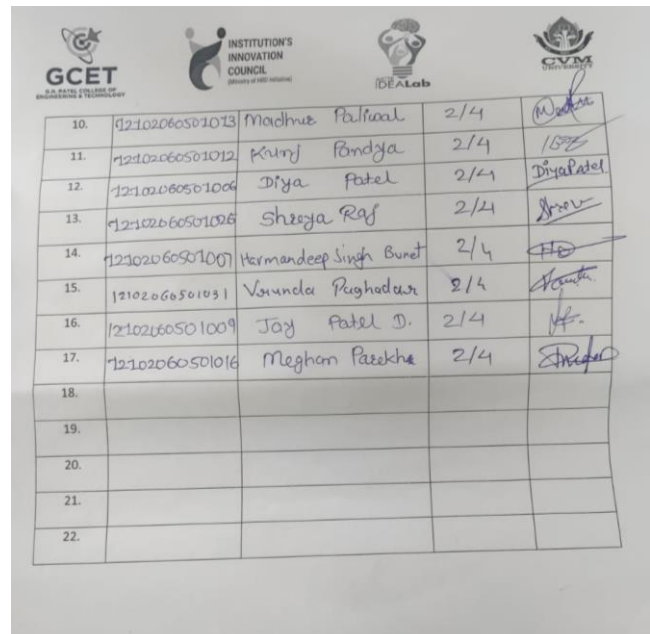 GCET
G.H. PATEL COLLEGE OF
ENGINEERING & TECHNOLOGY
INSTITUTION'S
INNOVATION
COUNCIL
(Ministry of HRD Initiative)
IDEALab
CVM
UNIVERSITY
10. 12102060501013 Madhur Paliwal 2/4
11. 12102060501012 Kunj Pandya 2/4
12. 12102060501006 Diya Patel 2/4 DiyaPatel
13. 12102060501026 Shreya Raj 2/4
14. 12102060501007 Harmandeep Singh Bunet 2/4
15. 12102060501031 Vrunda Paghadar 2/4
16. 12102060501009 Jay Patel D. 2/4
17. 12102060501016 Meghan Parekh 2/4
18.
19.
20.
21.
22.